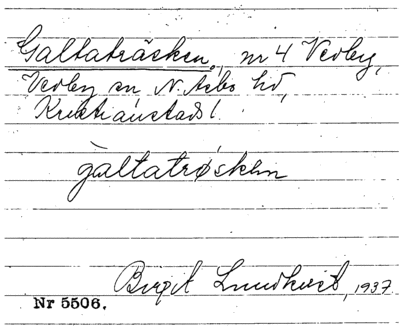 Galtaträsken, nr 4 Vedby,
Vedby sn N. Åsbo hd,
Kristianstads l.
galtatrøsken
Birgit Lundkvist, 1937.
Nr 5506.